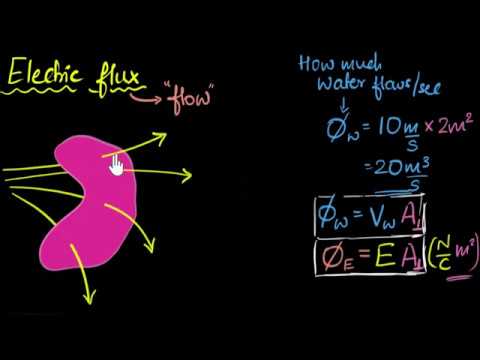 Electric flux
"flow"
How much
water flows/sec
Ø_w = 10 m/s × 2m²
= 20 m³/s
Ø_w = V_w A⊥
Ø_E = E A⊥ (N/C m²)